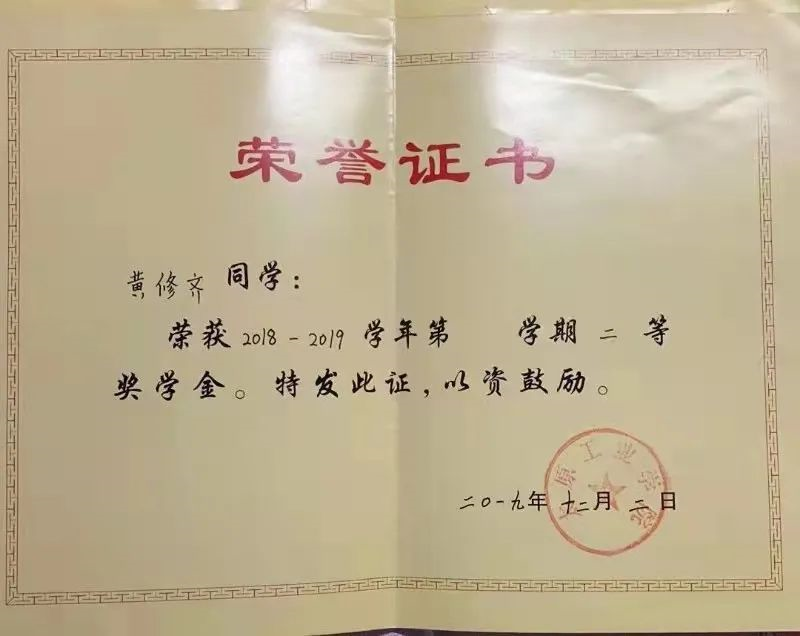 荣誉证书
黄修齐 同学：
荣获2018-2019学年第 学期 二 等
奖学金。特发此证，以资鼓励。
太原工业学院
二〇一九年 十二月 二 日